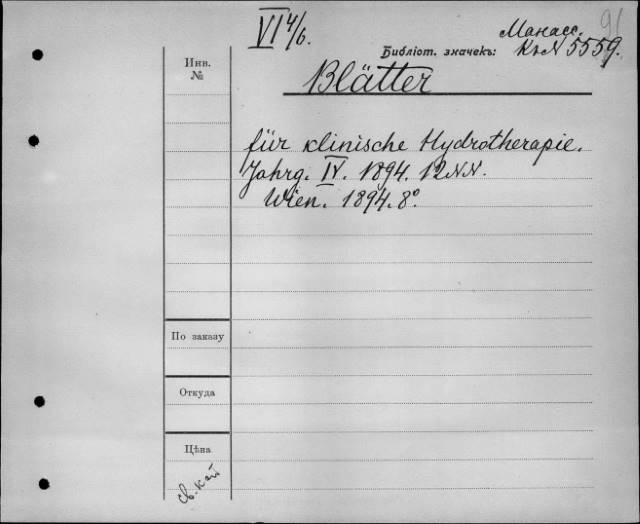 VI 4/6.
Манасс. 91
Библіот. значекъ: Къ N 5559.
Инв. №
Blätter
für klinische Hydrotherapie.
Jahrg. IV. 1894. 12 NN.
Wien. 1894. 8°.
По заказу
Откуда
Цѣна
св. кат